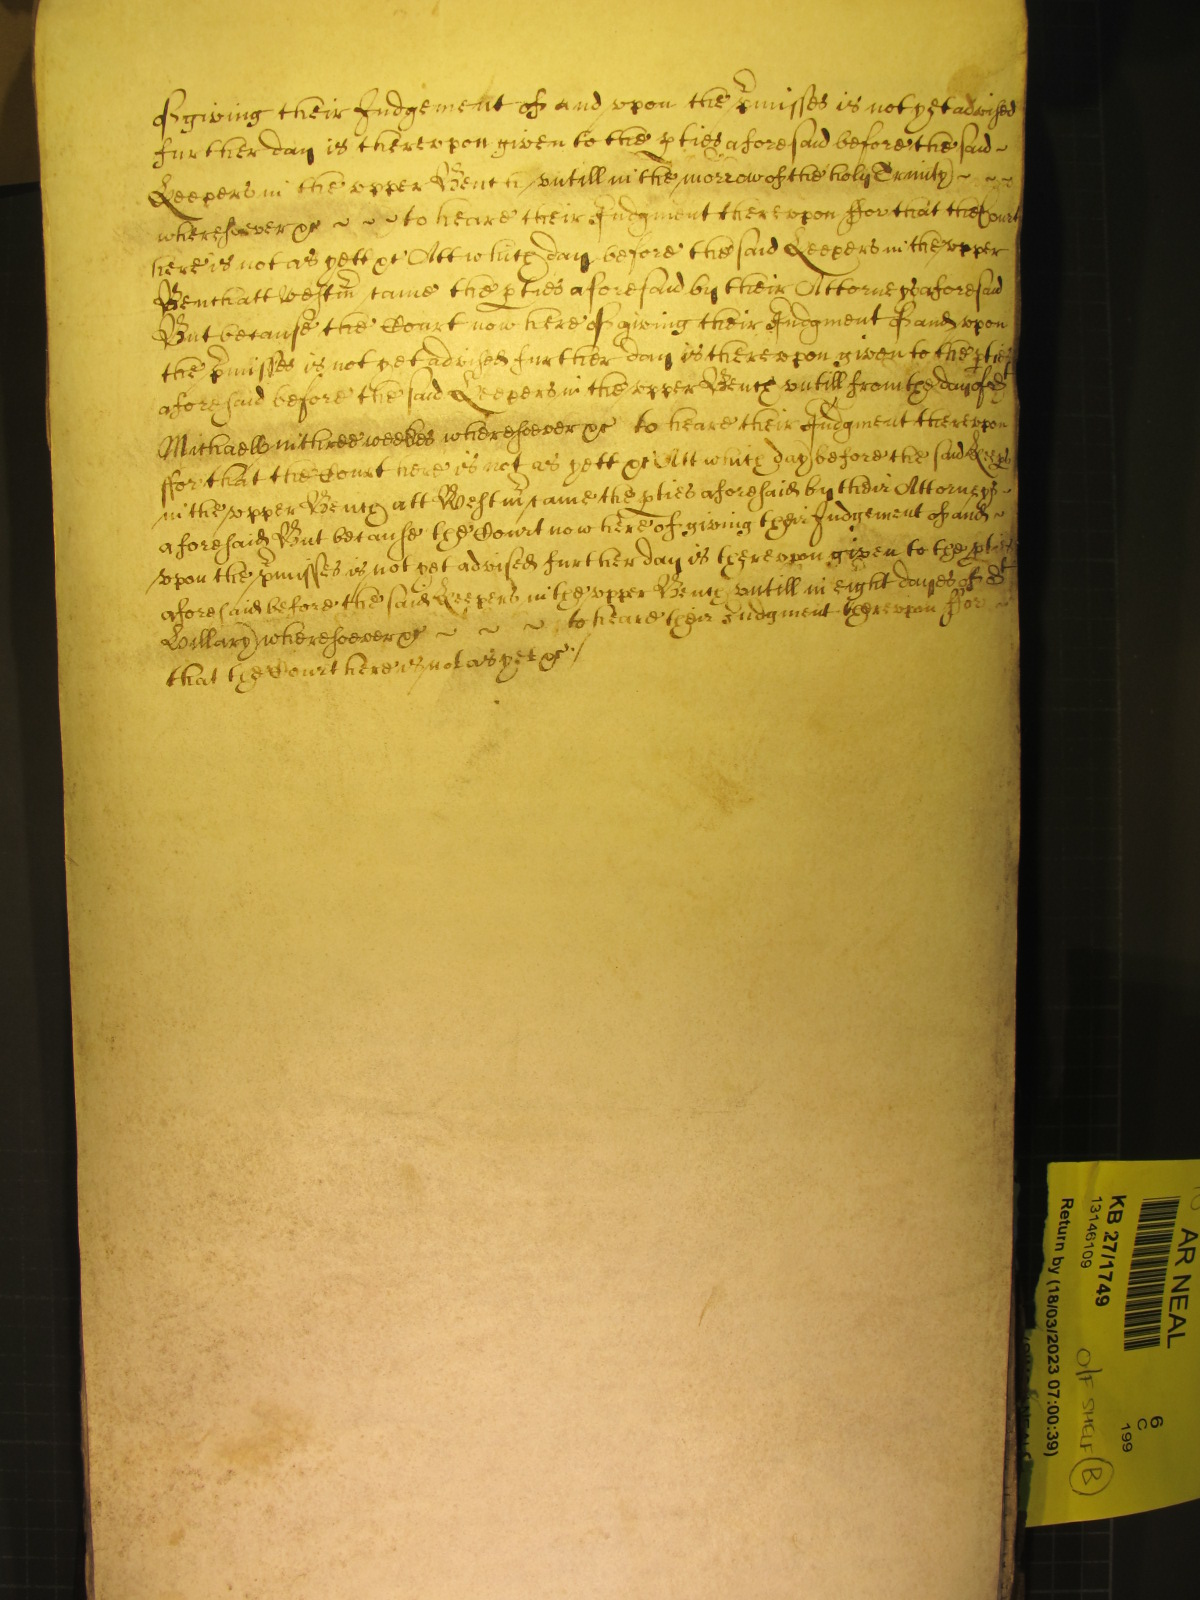 of giving their Judgement of and vpon the p̄misses is not yet advised
further day is therevpon given to the pties aforesaid before the said ~
Keepers in the vpper Bench vntill in the morrow of the holy Trinity ~ ~ ~
wheresoever &c ~ ~ ~ to heare their Judgment therevpon ffor that the Court
here is not as yett &c Att which day before the said Keepers in the vpper
Bench att Westm̄ came the pties aforesaid by their Attorneys aforesaid
But because the Court now here of giving their Judgment of and vpon
the p̄misses is not yet advised further day is therevpon given to the pties
aforesaid before the said Keepers in the vpper Bench vntill from the day of St
Michaell in three weekes wheresoever &c to heare their Judgment therevpon
ffor that the Court here is not as yett &c Att which day before the said Keeps
in the vpper Bench att Westm̄ came the pties aforesaid by their Attorneys ~
aforesaid But because the Court now here of giving their Judgement of and ~
vpon the p̄misses is not yet advised further day is therevpon given to the pties
aforesaid before the said Keepers in the vpper Bench vntill in eight dayes of St
Hillary wheresoever &c ~ ~ ~ to heare their Judgment therevpon ffor ~
that the Court here is not as yet &c /
AR NEAL
6
C
199
KB 27/1749
13146109
Return by (18/03/2023 07:00:39)
O/F SHELF B